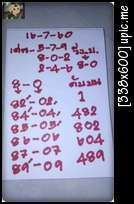 16-7-60
เด่น-5-7-9
8-0-2
2-4-6 8-0
8-0
82-02,
1
84-04,
482
85-05,
802
86-06
604
87-07
489
89-09
[338x600] upic.me